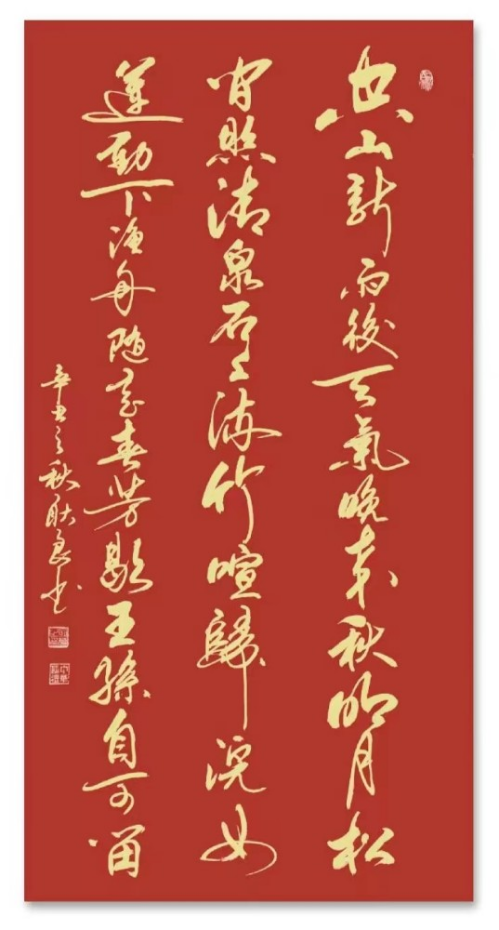 空山新雨後天氣晚来秋明月松
间照清泉石上流竹喧歸浣女
蓮動下渔舟随意春芳歇王孫自可留
辛丑之秋耿良书